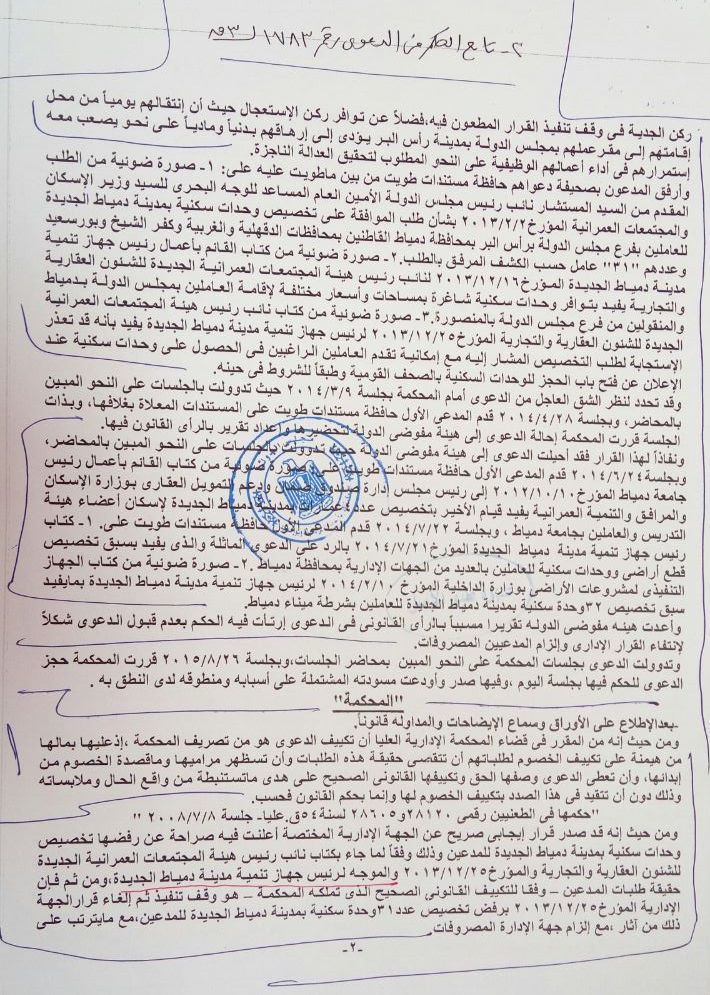 ٢- تابع الحكم فى الدعوى رقم ١٧٨٣ لـ ٣ق
ركن الجدية فى وقف تنفيذ القرار المطعون فيه،فضلاً عن توافر ركن الإستعجال حيث أن إنتقالهم يومياً من محل
إقامتهم إلى مقرعملهم بمجلس الدولة بمدينة رأس البر يؤدى إلى إرهاقهم بدنياً ومادياً على نحو يصعب معه
إستمرارهم فى أداء أعمالهم الوظيفية على النحو المطلوب لتحقيق العدالة الناجزة.
وأرفق المدعون بصحيفة دعواهم حافظة مستندات طويت من بين ماطويت عليه على: ١- صورة ضوئية من الطلب
المقدم من السيد المستشار نائب رئيس مجلس الدولة الأمين العام المساعد للوجه البحرى للسيد وزير الإسكان
والمجتمعات العمرانية المؤرخ٢٠١٣/٢/٢ بشأن طلب الموافقة على تخصيص وحدات سكنية بمدينة دمياط الجديدة
للعاملين بفرع مجلس الدولة برأس البر بمحافظة دمياط القاطنين بمحافظات الدقهلية والغربية وكفر الشيخ وبورسعيد
وعددهم "٣١" عامل حسب الكشف المرفق بالطلب.٢- صورة ضوئية من كتاب القائم بأعمال رئيس جهاز تنمية
مدينة دمياط الجديدة المؤرخ٢٠١٣/١٢/١٦ لنائب رئيس هيئة المجتمعات العمرانية الجديدة للشئون العقارية
والتجارية يفيد بتوافر وحدات سكنية شاغرة بمساحات وأسعار مختلفة لإقامة العاملين بمجلس الدولة بدمياط
والمنقولين من فرع مجلس الدولة بالمنصورة.٣- صورة ضوئية من كتاب نائب رئيس هيئة المجتمعات العمرانية
الجديدة للشئون العقارية والتجارية المؤرخ ٢٠١٣/١٢/٢٥ لرئيس جهاز تنمية دمياط الجديدة يفيد بأنه قد تعذر
الإستجابة لطلب التخصيص المشار إليه مع إمكانية تقدم العاملين الراغبين فى الحصول على وحدات سكنية عند
الإعلان عن فتح باب الحجز للوحدات السكنية بالصحف القومية وطبقاً للشروط فى حينه.
وقد تحدد لنظر الشق العاجل من الدعوى أمام المحكمة بجلسة ٢٠١٤/٣/٩ حيث تدوولت بالجلسات على النحو المبين
بالمحاضر، وبجلسة ٢٠١٤/٤/٢٨ قدم المدعى الأول حافظة مستندات طويت على المستندات المعلاة بغلافها، وبذات
الجلسة قررت المحكمة إحالة الدعوى إلى هيئة مفوضى الدولة لتحضيرها وإعداد تقرير بالرأى القانون فيها.
ونفاذاً لهذا القرار فقد أحيلت الدعوى إلى هيئة مفوضى الدولة حيث تدوولت بالجلسات على النحو المبين بالمحاضر،
وبجلسة٢٠١٤/٦/٢٤ قدم المدعى الأول حافظة مستندات طويت على صورة ضوئية من كتاب القائم بأعمال رئيس
جامعة دمياط المؤرخ ٢٠١٢/١٠/١٠ إلى رئيس مجلس إدارة صندوق ضمان ودعم التمويل العقارى بوزارة الإسكان
والمرافق والتنمية العمرانية يفيد قيام الأخير بتخصيص عدد عمارات بمدينة دمياط الجديدة لإسكان أعضاء هيئة
التدريس والعاملين بجامعة دمياط ، وبجلسة ٢٠١٤/٧/٢٢ قدم المدعى الأول حافظة مستندات طويت على. ١- كتاب
رئيس جهاز تنمية مدينة دمياط الجديدة المؤرخ٢٠١٤/٧/٢١ بالرد على الدعوى الماثلة والذى يفيد بسبق تخصيص
قطع أراضى ووحدات سكنية للعاملين بالعديد من الجهات الإدارية بمحافظة دمياط .٢- صورة ضوئية من كتاب الجهاز
التنفيذى لمشروعات الأراضى بوزارة الداخلية المؤرخ ٢٠١٤/٢/١٠ لرئيس جهاز تنمية مدينة دمياط الجديدة بمايفيد
سبق تخصيص ٣٢وحدة سكنية بمدينة دمياط الجديدة للعاملين بشرطة ميناء دمياط.
وأعدت هيئه مفوضى الدوله تقريرا مسبباً بالرأى القانونى فى الدعوى إرتأت فيه الحكم بعدم قبول الدعوى شكلاً
لإنتفاء القرار الإدارى وإلزام المدعيين المصروفات.
وتدوولت الدعوى بجلسات المحكمة على النحو المبين بمحاضر الجلسات،وبجلسة ٢٠١٥/٨/٢٦ قررت المحكمة حجز
الدعوى للحكم فيها بجلسة اليوم ،وفيها صدر وأودعت مسودته المشتملة على أسبابه ومنطوقه لدى النطق به .
"المحكمة"
-بعدالإطلاع على الأوراق وسماع الإيضاحات والمداوله قانوناً.
ومن حيث إنه من المقرر فى قضاء المحكمة الإدارية العليا أن تكييف الدعوى هو من تصريف المحكمة ،إذعليها بمالها
من هيمنة على تكييف الخصوم لطلباتهم أن تتقصى حقيقة هذه الطلبات وأن تسظهر مراميها وماقصدة الخصوم من
إبدائها، وأن تعطى الدعوى وصفها الحق وتكييفها القانونى الصحيح على هدى ماتستنبطة من واقع الحال وملابساته
وذلك دون أن تتقيد فى هذا الصدد بتكييف الخصوم لها وإنما بحكم القانون فحسب.
"حكمها فى الطعنيين رقمى ٢٨١٢٠ و٢٨٦٠٥ لسنة٥٤ق.عليا- جلسة ٢٠٠٨/٧/٨ "
ومن حيث إنه قد صدر قرار إيجابى صريح عن الجهة الإدارية المختصة أعلنت فيه صراحة عن رفضها تخصيص
وحدات سكنية بمدينة دمياط الجديدة للمدعين وذلك وفقاً لما جاء بكتاب نائب رئيس هيئة المجتمعات العمرانية الجديدة
للشئون العقارية والتجارية والمؤرخ ٢٠١٣/١٢/٢٥ والموجه لرئيس جهاز تنمية مدينة دمياط الجديدة،ومن ثم فإن
حقيقة طلبات المدعين – وفقا للتكييف القانونى الصحيح الذى تملكه المحكمة – هو وقف تنفيذ ثم إلغاء قرارالجهة
الإدارية المؤرخ ٢٠١٣/١٢/٢٥ برفض تخصيص عدد٣١وحدة سكنية بمدينة دمياط الجديدة للمدعين،مع مايترتب على
ذلك من آثار ،مع إلزام جهة الإدارة المصروفات.
-٢-